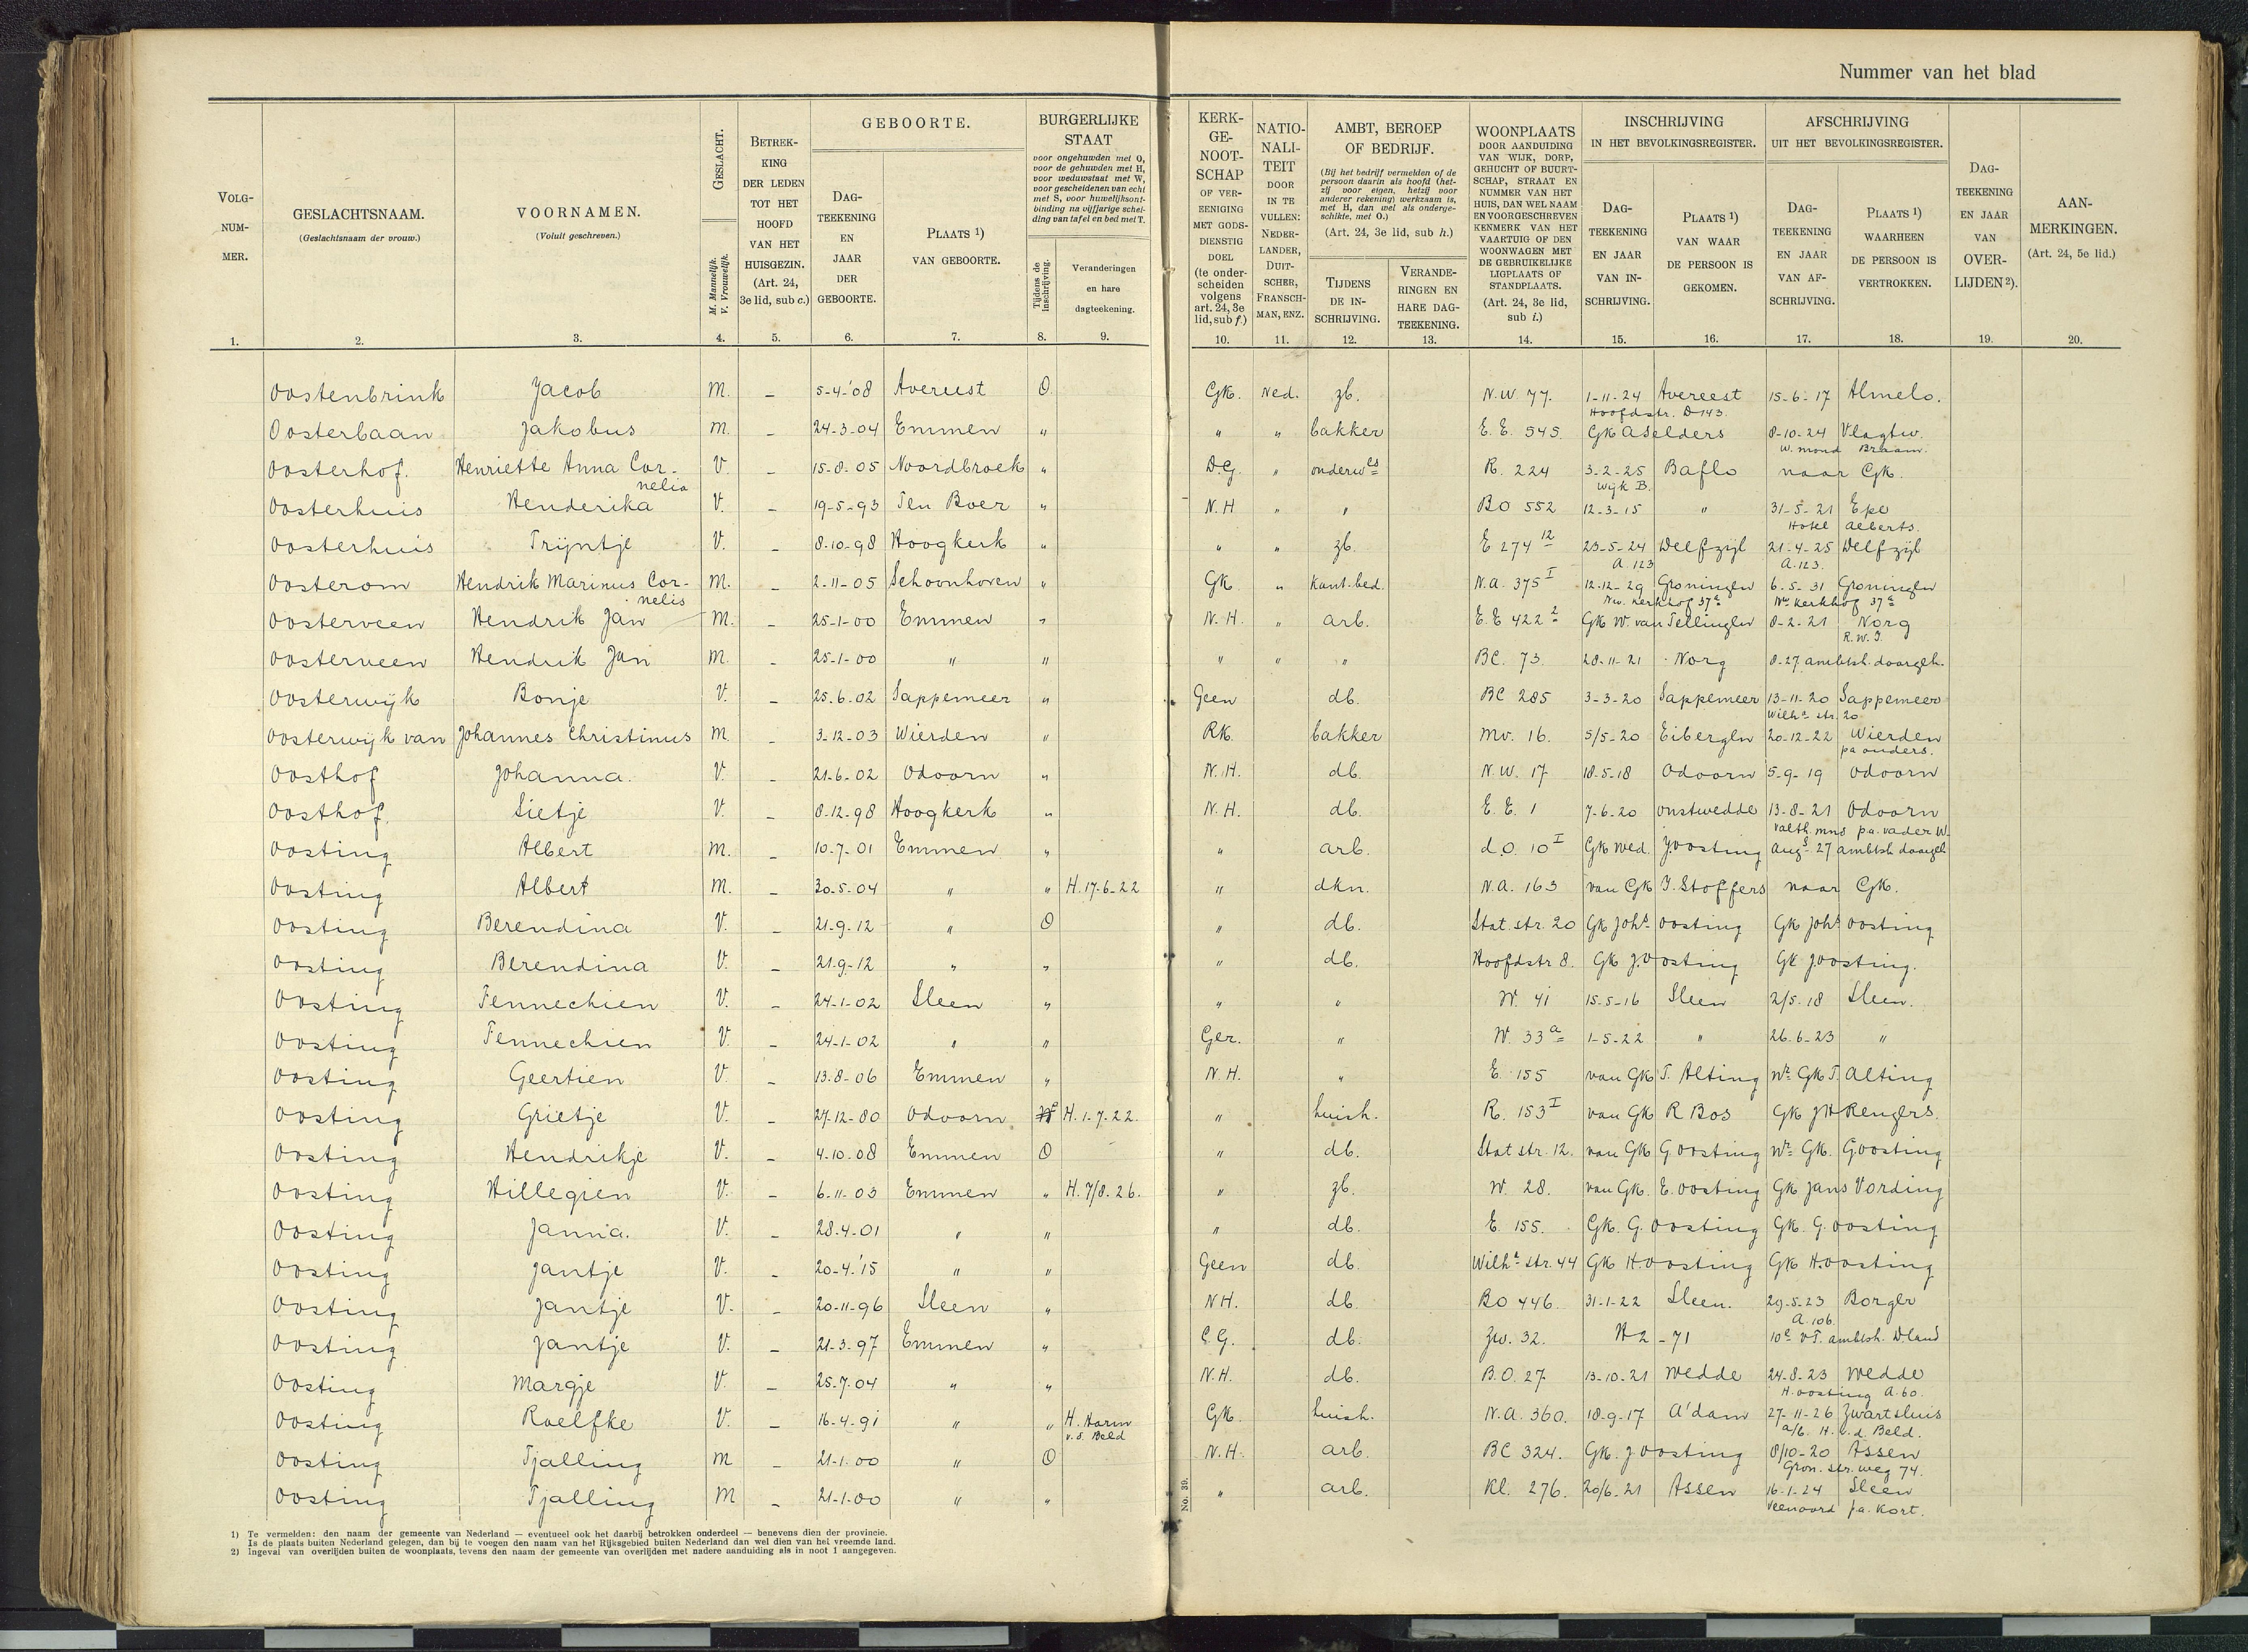 Nummer van het blad
VOLGNUMMER. GESLACHTSNAAM. (Geslachtsnaam der vrouw.) VOORNAMEN. (Voluit geschreven.) GESLACHT. M. Mannelijk. V. Vrouwelijk. BETREKKING DER LEDEN TOT HET HOOFD VAN HET HUISGEZIN. (Art. 24, 3e lid, sub c.) GEBOORTE. DAGTEEKENING EN JAAR DER GEBOORTE. PLAATS 1) VAN GEBOORTE. BURGERLIJKE STAAT voor ongehuwden met O, voor de gehuwden met H, voor weduwstaat met W, voor gescheidenen van echt met S, voor huwelijksontbinding na vijfjarige scheiding van tafel en bed met T. Tijdens de inschrijving. Veranderingen en hare dagteekening.
KERKGENOOTSCHAP OF VEREENIGING MET GODSDIENSTIG DOEL (te onderscheiden volgens art. 24, 3e lid, sub f.) NATIONALITEIT DOOR IN TE VULLEN: NEDERLANDER, DUITSCHER, FRANSCHMAN, ENZ. AMBT, BEROEP OF BEDRIJF. (Bij het bedrijf vermelden of de persoon daarin als hoofd (hetzij voor eigen, hetzij voor anderer rekening) werkzaam is, met H, dan wel als ondergeschikte, met O.) (Art. 24, 3e lid, sub h.) TIJDENS DE INSCHRIJVING. VERANDERINGEN EN HARE DAGTEEKENING. WOONPLAATS DOOR AANDUIDING VAN WIJK, DORP, GEHUCHT OF BUURTSCHAP, STRAAT EN NUMMER VAN HET HUIS, DAN WEL NAAM EN VOORGESCHREVEN KENMERK VAN HET VAARTUIG OF DEN WOONWAGEN MET DE GEBRUIKELIJKE LIGPLAATS OF STANDPLAATS. (Art. 24, 3e lid, sub i.) INSCHRIJVING IN HET BEVOLKINGSREGISTER. DAGTEEKENING EN JAAR VAN INSCHRIJVING. PLAATS 1) VAN WAAR DE PERSOON IS GEKOMEN. AFSCHRIJVING UIT HET BEVOLKINGSREGISTER. DAGTEEKENING EN JAAR VAN AFSCHRIJVING. PLAATS 1) WAARHEEN DE PERSOON IS VERTROKKEN. DAGTEEKENING EN JAAR VAN OVERLIJDEN 2). AANMERKINGEN. (Art. 24, 5e lid.)
1. 2. 3. 4. 5. 6. 7. 8. 9. 10. 11. 12. 13. 14. 15. 16. 17. 18. 19. 20.
Oostenbrink Jacob M. - 5-4-'08 Avereest O. GK. Ned. zb. N.W 77. 1-11-24 Avereest 15-6-17 Almelo.
Hoofdstr. D 143.
Oosterbaan Jakobus M. - 24-3-04 Emmen " " " bakker E.E. 545. GK A Selders 8-10-24 Vlagtw.
W. mond Braam.
Oosterhof. Henriette Anna Cornelia V. - 15-8-05 Noordbroek " D.G. " onderw.es R. 224 3-2-25 Baflo naar GK.
Wijk B.
Oosterhuis Henderika V. - 19-5-93 Ten Boer " N.H " " BO 552 12-3-15 " 31-5-21 Epe
Hotel Alberts.
Oosterhuis Trijntje V. - 8-10-98 Hoogkerk " " " zb. E 274 12 23-5-24 Delfzijl 21-4-25 Delfzijl
A. 123 A. 123.
Oosterom Hendrik Marinus Cornelis M. - 2-11-05 Schoonhoven " GK " kant.bed. N.A. 375 I 12-12-29 Groningen 6-5-31 Groningen
Nw. Kerkhof 37a Nw Kerkhof 37a
Oosterveen Hendrik Jan M. - 25-1-00 Emmen " N.H. " arb. E.E 422 2 GK W. van Tellingen 8-2-21 Norg
R.W.I.
Oosterveen Hendrik Jan M. - 25-1-00 " " " " " BC. 73. 28-11-21 Norg 8-27 ambtsh. doorgeh.
Oosterwijk Bonje V. - 25-6-02 Sappemeer " Geen db. BC 285 3-3-20 Sappemeer 13-11-20 Sappemeer
Wilha str. 20
Oosterwijk van Johannes Christinus M. - 3-12-03 Wierden " RK. bakker Mv. 16. 5/5-20 Eibergen 20-12-22 Wierden
pa ouders.
Oosthof Johanna. V. - 21-6-02 Odoorn " N.H. db. N.W. 17 18-5-18 Odoorn 5-9-19 Odoorn
Oosthof. Sietje V. - 8-12-98 Hoogkerk " N.H. db. E.E. 1 7-6-20 Onstwedde 13-8-21 Odoorn
Valth. mnd pa. vader W.
Oosting Albert M. - 10-7-01 Emmen " " arb. d.O. 10 I GK Wed. J. Oosting Aug 27 ambtsh doorgeh
Oosting Albert M. - 30-5-04 " " H. 17-6-22 " dkn. N.A. 163 van GK J. Stoffers naar GK.
Oosting Berendina V. - 21-9-12 " O " db. Stat. str. 20 GK Johs Oosting GK Johs Oosting
Oosting Berendina V. - 21-9-12 " " " db. Hoofdstr 8. GK J. Oosting GK J Oosting.
Oosting Fennechien V. - 24-1-02 Sleen " " " W. 41 15-5-16 Sleen 2/5-18 Sleen.
Oosting Fennechien V. - 24-1-02 " " Ger. " W. 33 a 1-5-22 " 26-6-23 "
Oosting Geertien V. - 13-8-06 Emmen " N.H. " E. 155 van GK T. Alting Nr GK T. Alting
Oosting Grietje V. - 27-12-80 Odoorn H. 1-7-22. " huish. R. 153 I van GK R Bos GK J H Rengers.
Oosting Hendrikje V. - 4-10-08 Emmen O " db. Stat str. 12. van GK G Oosting Nr GK. G Oosting
Oosting Hillegien V. - 6-11-03 Emmen " H. 7/8-26. " zb. W. 28. van GK. E. Oosting GK Jans Vording
Oosting Janna. V. - 28-4-01 " " " db. E. 155. GK. G. Oosting GK. G. Oosting
Oosting Jantje V. - 20-4-'15 " " Geen db. Wilha str. 44 GK H. Oosting GK H. Oosting
Oosting Jantje V. - 20-11-96 Sleen " NH. db. BO 446. 31-1-22 Sleen. 29-5-23 Borger
A. 106.
Oosting Jantje V. - 21-3-97 Emmen " C.G. db. Zw. 32. A2-71 10e VT. ambtsh. Dland
Oosting Margje V. - 25-7-04 " " N.H. db. B.O. 27 13-10-21 Wedde 24-8-23 Wedde
H. Oosting A. 60.
Oosting Roelfke V. - 16-4-91 " " H. Harm v.d. Beld GK. huish. N.A. 360. 18-9-17 A'dam 27-11-26 Zwartsluis
a/b. H. v.d. Beld.
Oosting Tjalling M - 21-1-00 " O N.H. arb. BC 324. GK. J Oosting 8/10-20 Assen
Gron. str. weg 74.
Oosting Tjalling M - 21-1-00 " " " arb. Kl. 276. 20/6-21 Assen 16-1-24 Sleen
Veenoord pa. Kort.
No. 39.
1) Te vermelden: den naam der gemeente van Nederland — eventueel ook het daarbij betrokken onderdeel — benevens dien der provincie.
Is de plaats buiten Nederland gelegen, dan bij te voegen den naam van het Rijksgebied buiten Nederland dan wel dien van het vreemde land.
2) Ingeval van overlijden buiten de woonplaats, tevens den naam der gemeente van overlijden met nadere aanduiding als in noot 1 aangegeven.